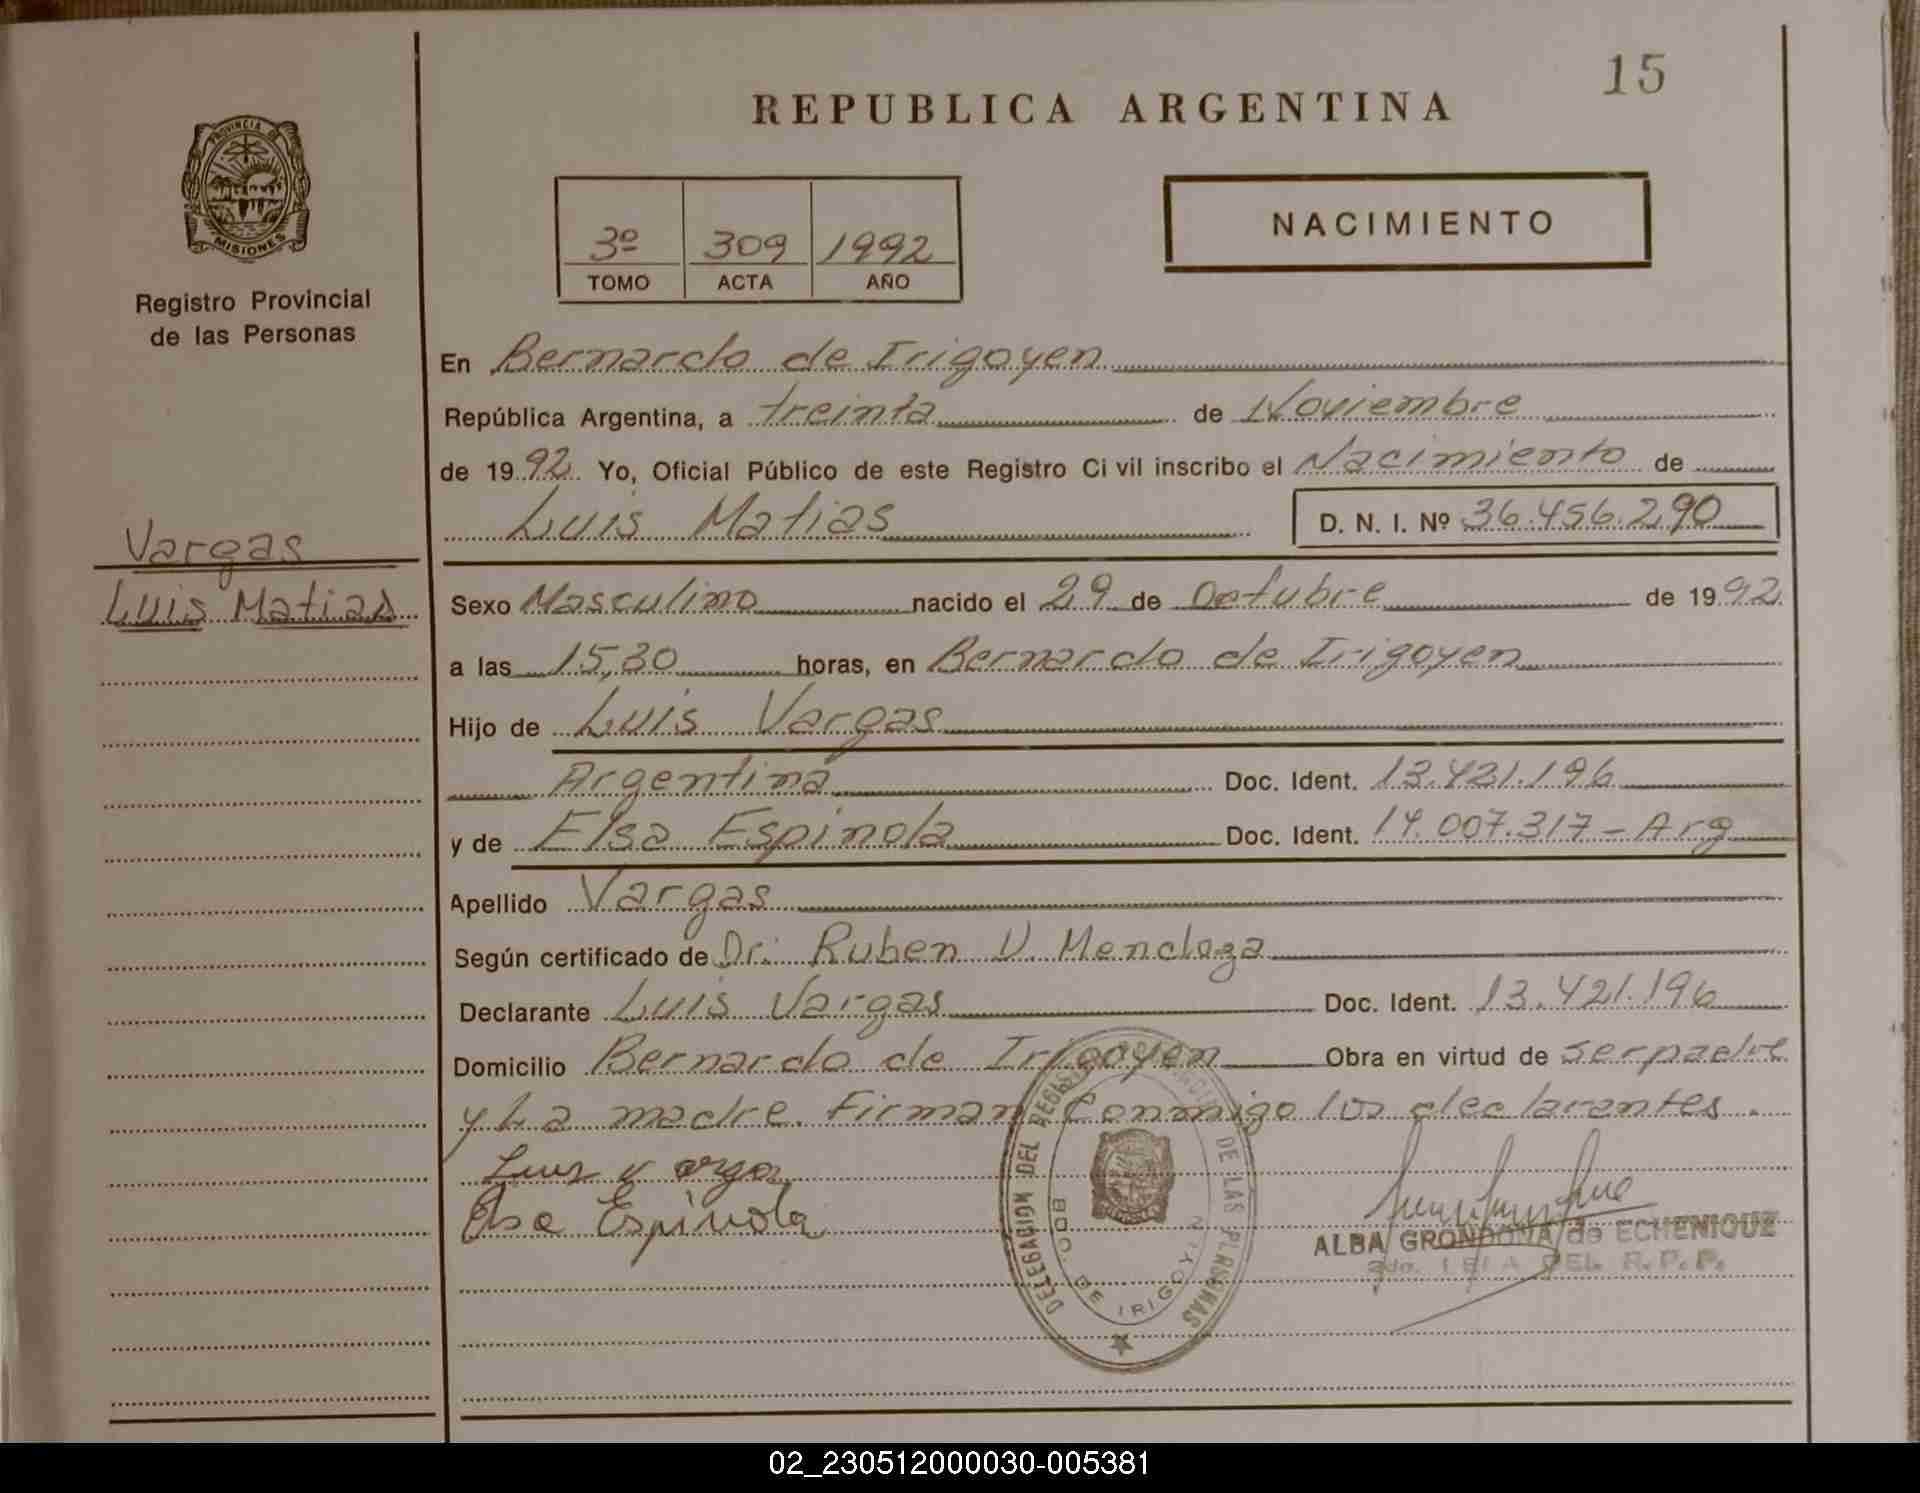 15
REPUBLICA ARGENTINA
PROVINCIA DE
MISIONES
Registro Provincial
de las Personas
3º 309 1992
TOMO ACTA AÑO
NACIMIENTO
En Bernardo de Irigoyen
República Argentina, a treinta de Noviembre
de 1992 Yo, Oficial Público de este Registro Civil inscribo el Nacimiento de
Luis Matias D. N. I. Nº 36.456.290
Vargas
Luis Matias
Sexo Masculino nacido el 29 de Octubre de 1992
a las 15,30 horas, en Bernardo de Irigoyen
Hijo de Luis Vargas
Argentina Doc. Ident. 13.421.196
y de Elsa Espinola Doc. Ident. 14.007.317 - Arg
Apellido Vargas
Según certificado de Dr. Ruben V. Mendoza
Declarante Luis Vargas Doc. Ident. 13.421.196
Domicilio Bernardo de Irigoyen Obra en virtud de ser padre
y La madre. Firman Conmigo los declarantes.
Luis Vargas
Elsa Espinola
DELEGACION DEL REGISTRO PROVINCIAL DE LAS PERSONAS
BDO. DE IRIGOYEN
ALBA GRONDONA de ECHENIQUE
DEL. R.P.P.
02_230512000030-005381